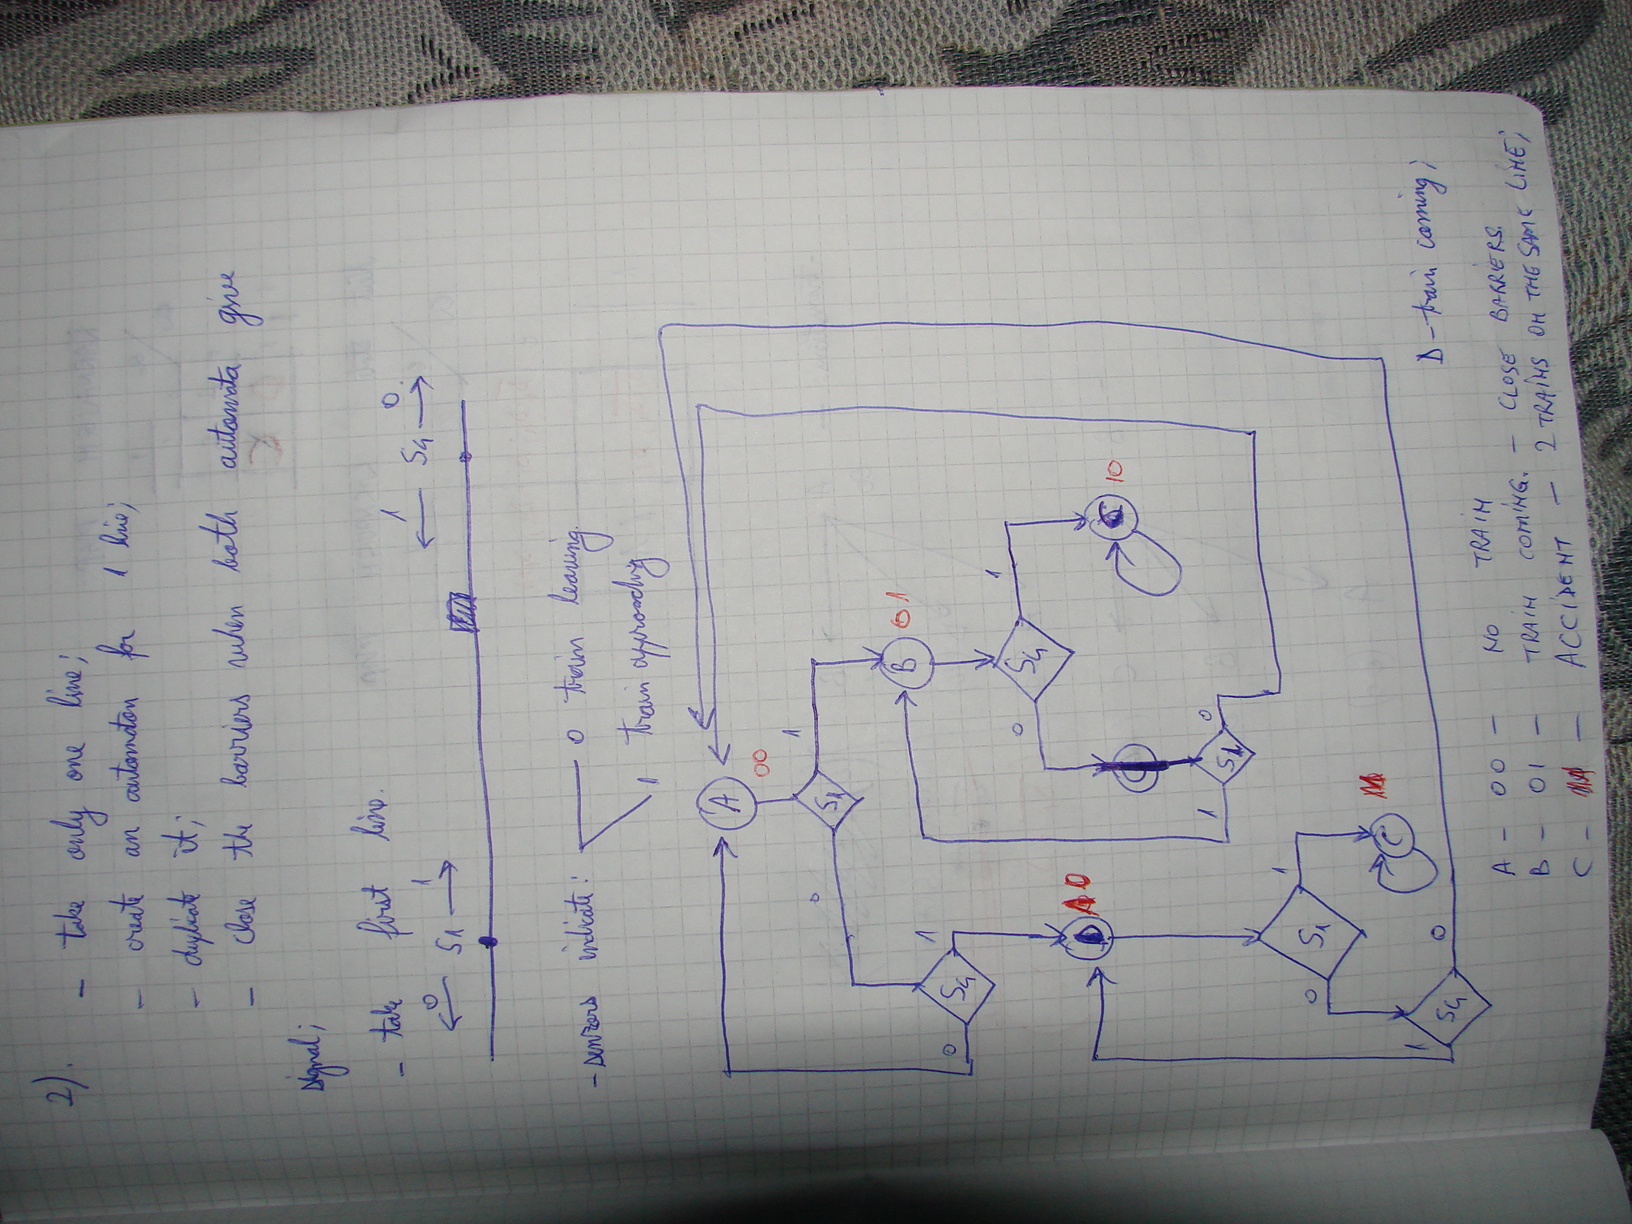 2).
- take only one line;
- create an automaton for 1 line;
- duplicate it;
- close the barriers when both automata give
signal;
- take first line.
0 S1 1
1 S4 0
- senzors indicate:
0 train leaving.
1 train approaching
A
00
S1
0
1
B
01
S4
0
1
C
10
S1
1
0
S4
0
1
D
S1
0
1
C
11
S4
1
0
D - train coming;
A - 00 - NO TRAIN
B - 01 - TRAIN COMING. - CLOSE BARRIERS.
C - 11 - ACCIDENT - 2 TRAINS ON THE SAME LINE;